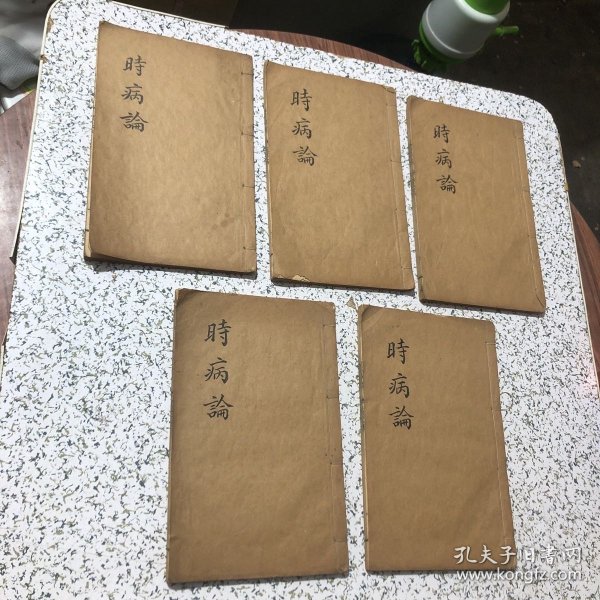 時病論
時病論
時病論
時病論
時病論
孔夫子旧书网
www.kongfz.com